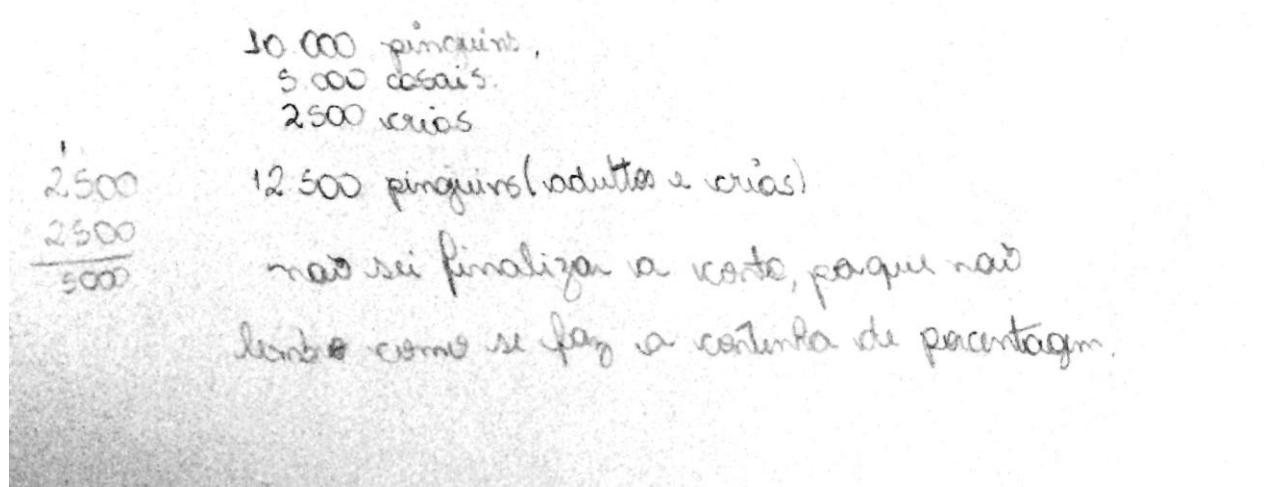 10.000 pinguins,
5.000 casais.
2500 crias
12.500 pinguins (adultos e crias)
1
2500
2500
5000
não sei finalizar a conta, porque não
lembro como se faz a continha de porcentagm.